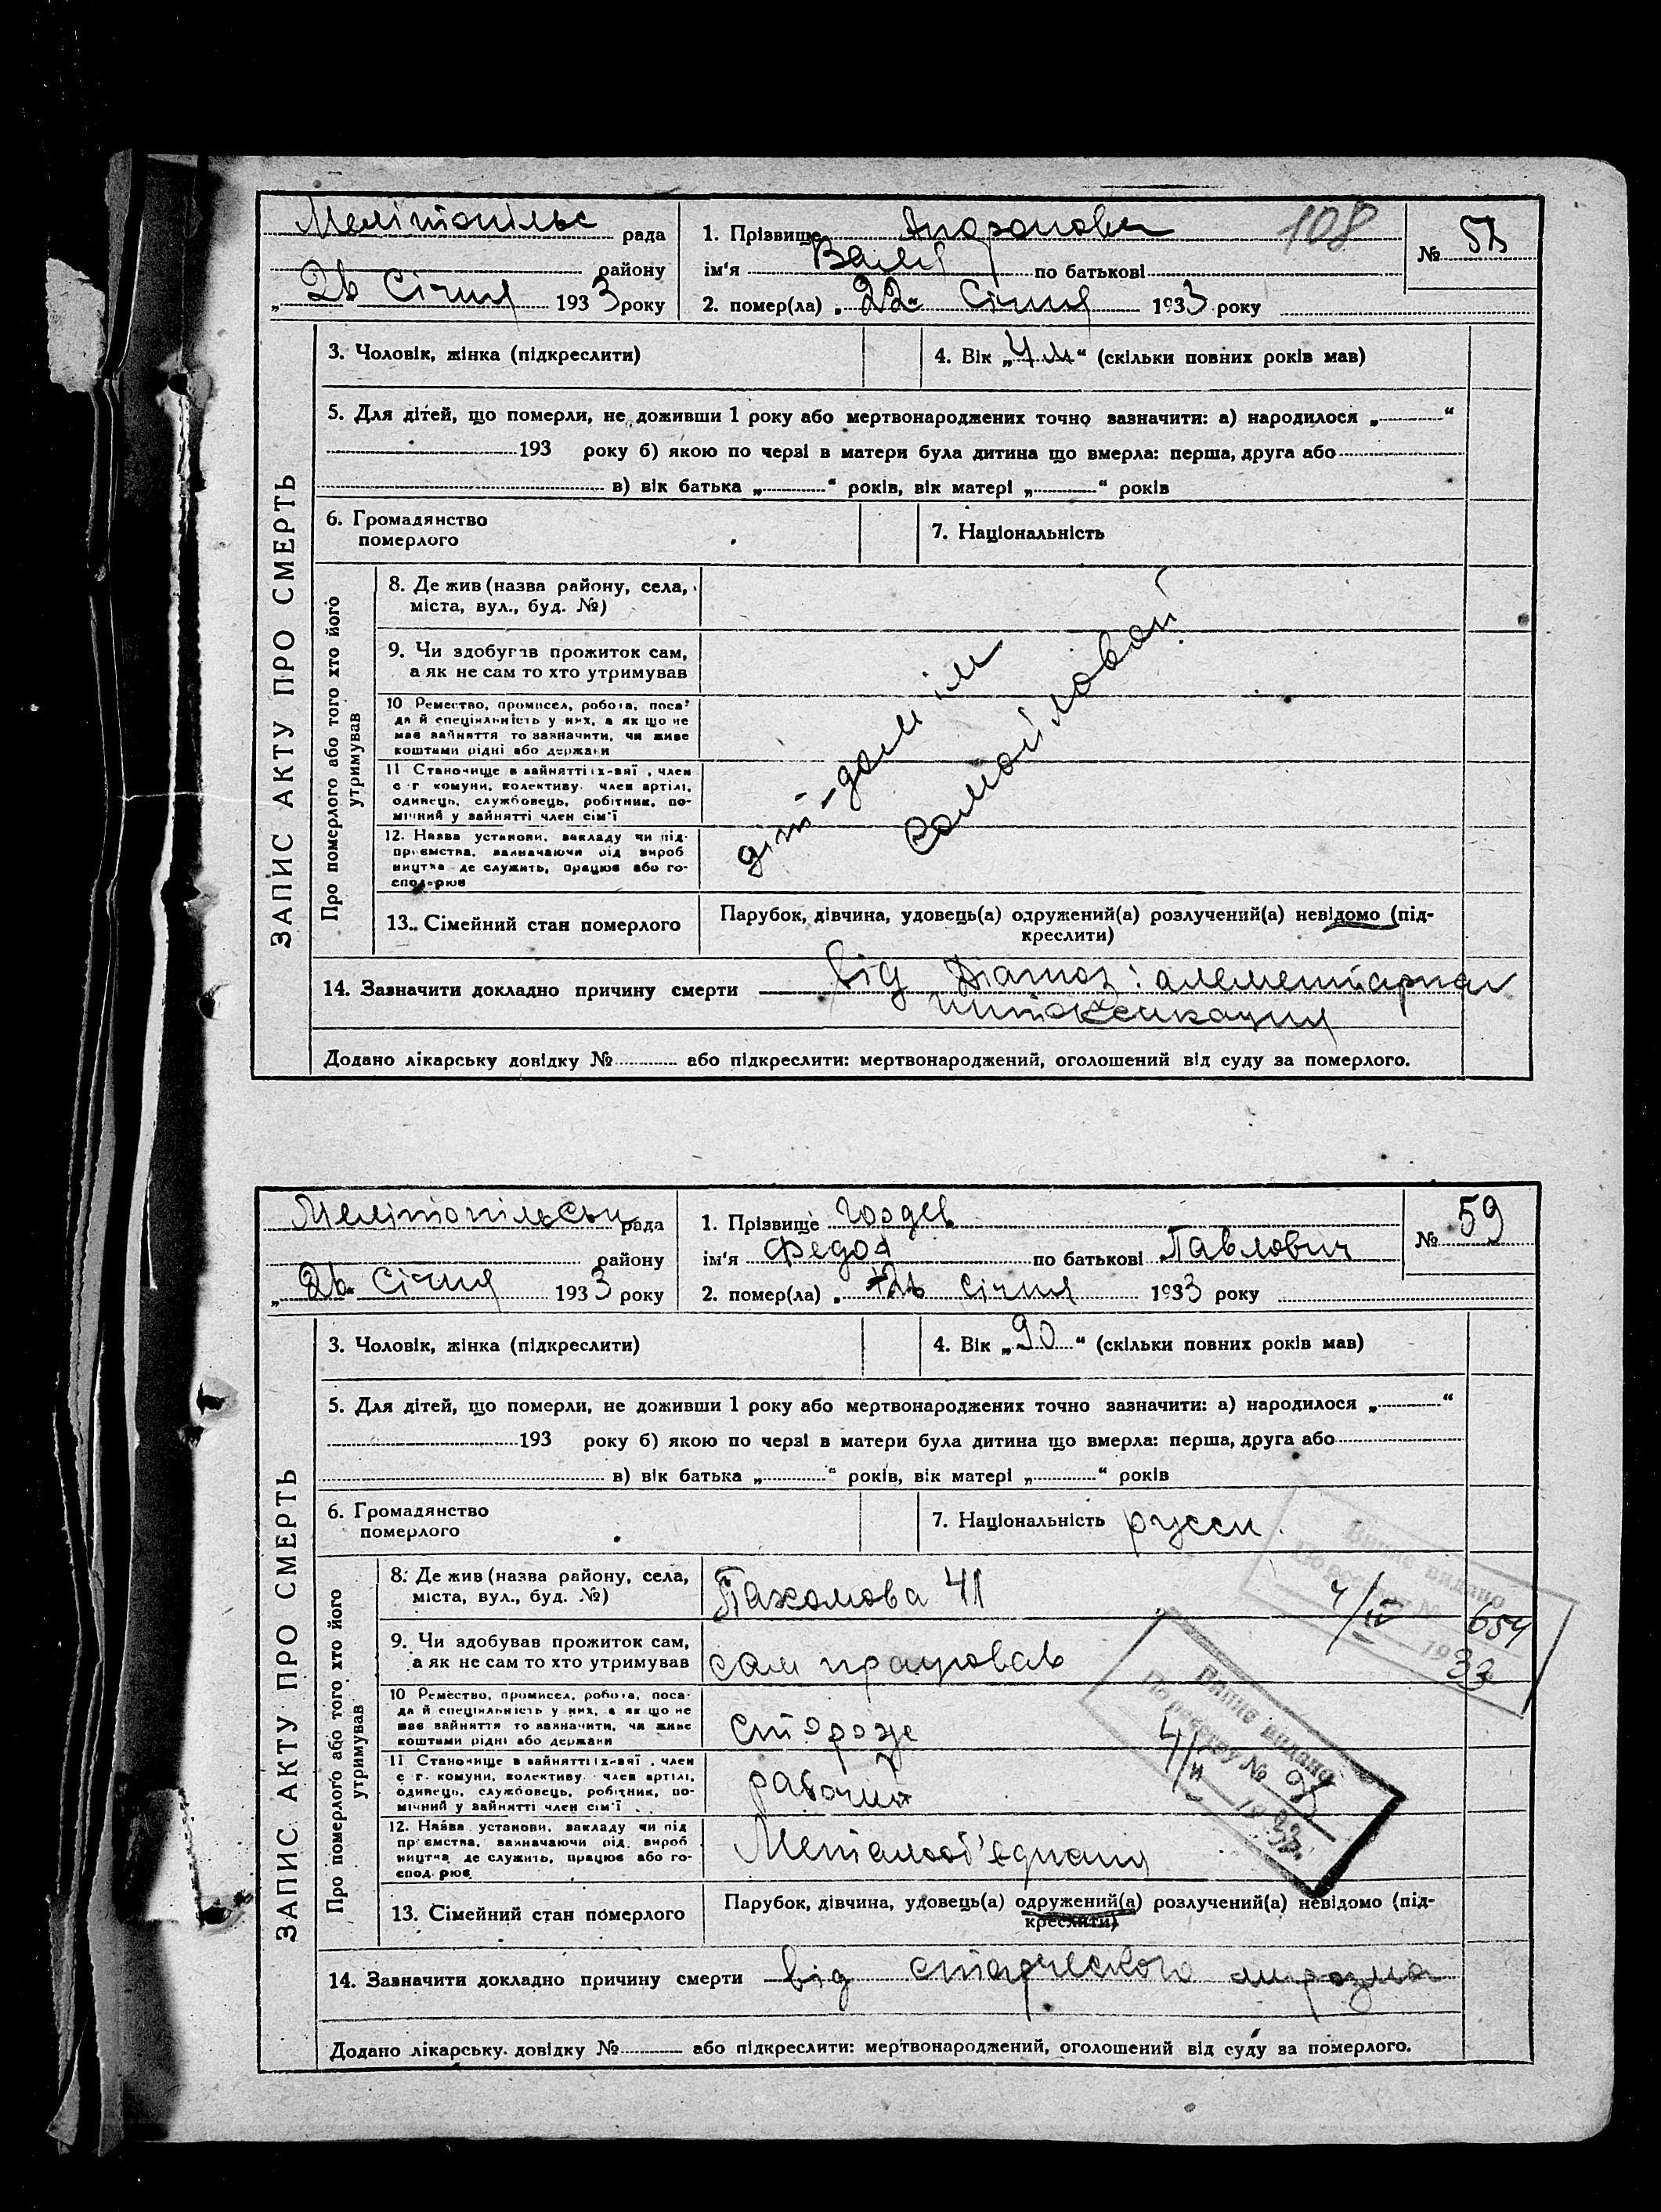 108
Мелітопільс рада
1. Прізвище Андронова
№ 58
району
ім'я Валя по батькові
„ 26 Січня 1933 року
2. помер(ла) „ 22 " Січня 1933 року
ЗАПИС АКТУ ПРО СМЕРТЬ
3. Чоловік, жінка (підкреслити)
4. Вік „ 4 м “ (скільки повних років мав)
5. Для дітей, що померли, не доживши 1 року або мертвонароджених точно зазначити: а) народилося „ “
193 року б) якою по черзі в матери була дитина що вмерла: перша, друга або
в) вік батька „ “ років, вік матері „ “ років
6. Громадянство
померлого
7. Національність
Про померлого або того хто його
утримував
8. Де жив (назва району, села,
міста, вул., буд. №)
9. Чи здобував прожиток сам,
а як не сам то хто утримував
10 Ремество, промисел, робота, поса-
да й спеціяльність у них, а як що не
має зайняття то зазначити, чи живе
коштами рідні або держави
11 Становище в зайнятті (х-вяї, член
с г. комуни, колективу. член артілі,
одинець, службовець, робітник, по-
мічний у зайнятті член сім'ї
12. Назва установи, закладу чи під-
приємства, зазначаючи рід вироб
ництва де служить, працює або го-
сподарює
діт-домім
Самойловой
13. Сімейний стан померлого
Парубок, дівчина, удовець(а) одружений(а) розлучений(а) невідомо (під-
креслити)
14. Зазначити докладно причину смерти від Діагноз: алементарная
интоксикация
Додано лікарську довідку № або підкреслити: мертвонароджений, оголошений від суду за померлого.
Мелітопільськ рада
1. Прізвище Гордев
№ 59
району
ім'я Федор по батькові Павлович
„ 26 " Січня 1933 року
2. помер(ла) „ січня 1933 року
ЗАПИС АКТУ ПРО СМЕРТЬ
3. Чоловік, жінка (підкреслити)
4. Вік „ 90 “ (скільки повних років мав)
5. Для дітей, що померли, не доживши 1 року або мертвонароджених точно зазначити: а) народилося „ “
193 року б) якою по черзі в матери була дитина що вмерла: перша, друга або
в) вік батька „ “ років, вік матері „ “ років
6. Громадянство
померлого
7. Національність русск.
Про померлого або того хто його
утримував
8. Де жив (назва району, села,
міста, вул., буд. №)
Пахомова 41
9. Чи здобував прожиток сам,
а як не сам то хто утримував
сам працював
10 Ремество, промисел, робота, поса-
да й спеціяльність у них, а як що не
має зайняття то зазначити, чи живе
коштами рідні або держави
сторож
11 Становище в зайнятті (х-вяї, член
с г. комуни, колективу. член артілі,
одинець, службовець, робітник, по-
мічний у зайнятті член сім'ї
рабочий
12. Назва установи, закладу чи під
приємства, зазначаючи рід вироб
ництва де служить, працює або го-
сподарює
Металооб'єднання
Випис видано
По реєстру № 654
4/IV 1933
Випис видано
По реєстру №
13. Сімейний стан померлого
Парубок, дівчина, удовець(а) одружений(а) розлучений(а) невідомо (під-
креслити)
14. Зазначити докладно причину смерти від старческого маразма
Додано лікарську довідку № або підкреслити: мертвонароджений, оголошений від суду за померлого.